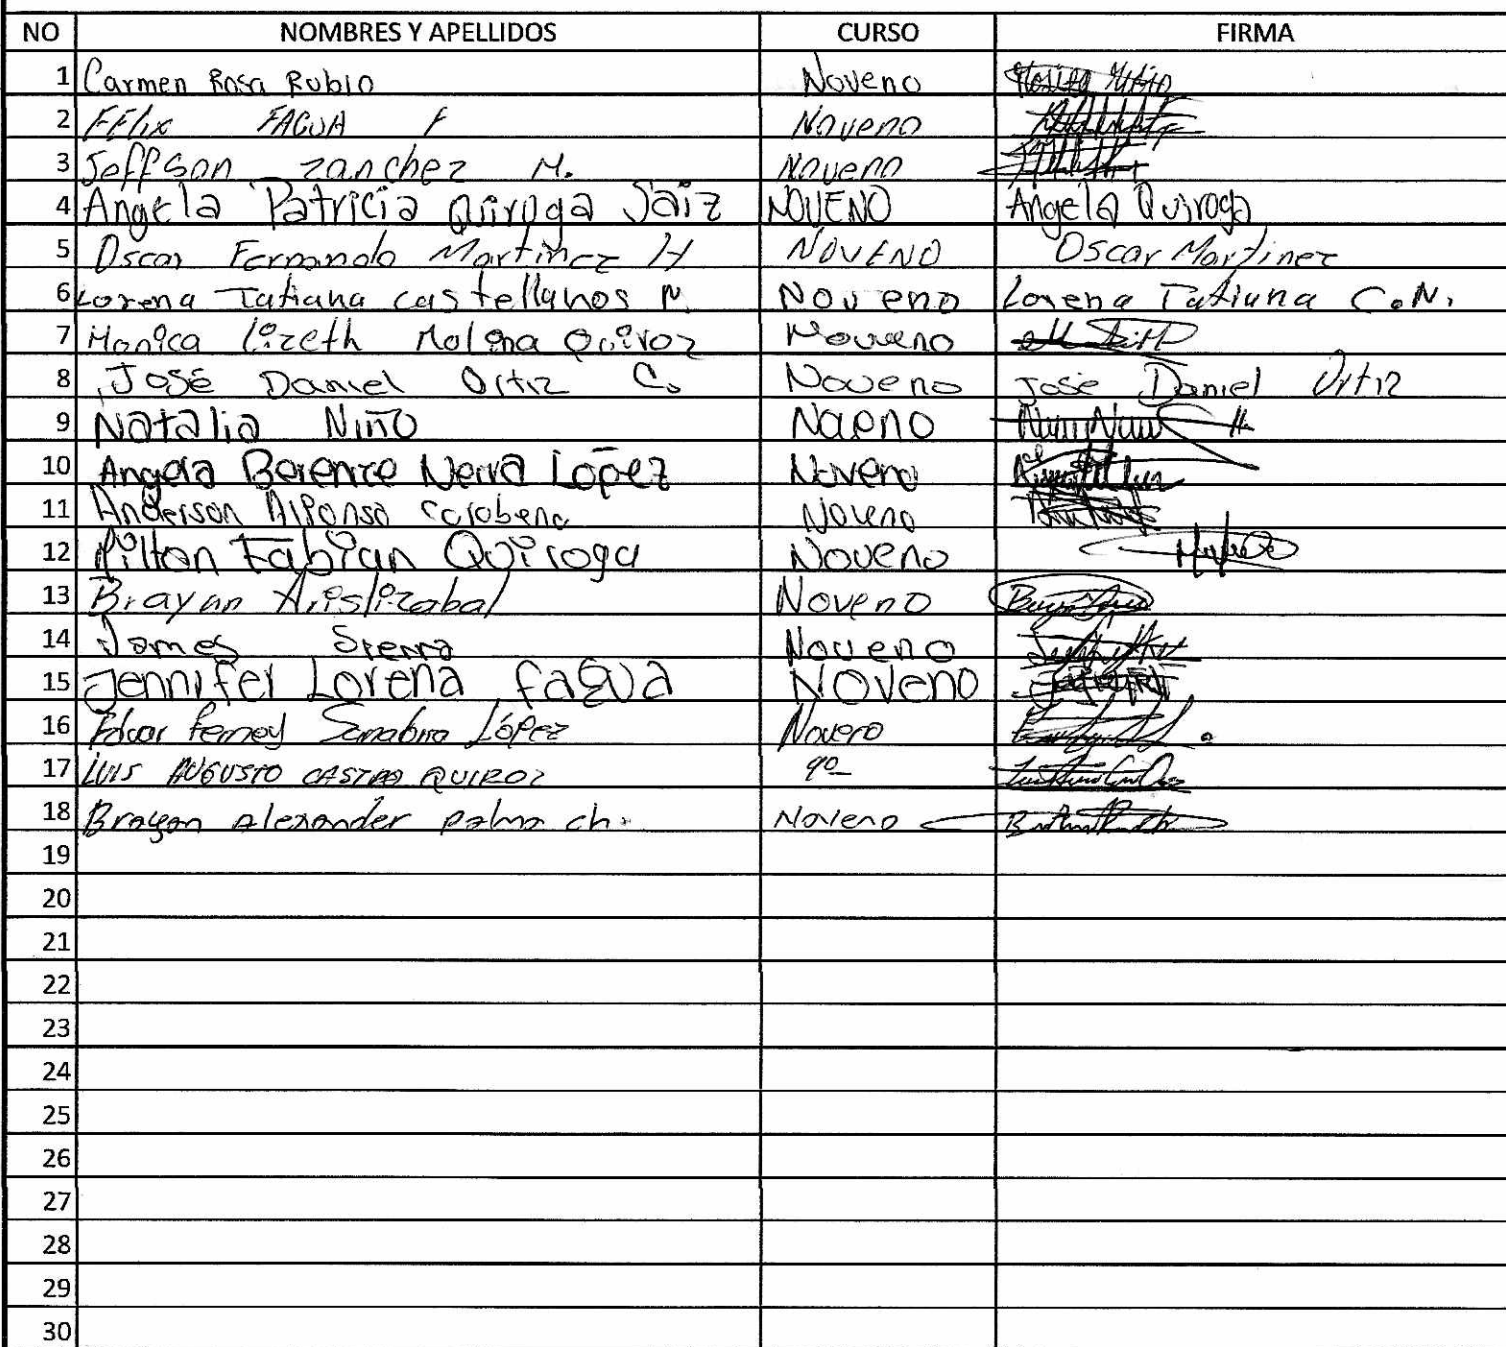 NO NOMBRES Y APELLIDOS CURSO FIRMA
1 Carmen Rosa Rubio Noveno
2 FElix FAGUA F Noveno
3 Jeffson zanchez M. Noveno
4 Angela Patricia Quiroga Saiz NOVENO Angela Quiroga
5 Oscar Fernando Martinez H NOVENO Oscar Martinez
6 Lorena Tatiana castellanos N. Noveno Lorena Tatiana C.N.
7 Monica lizeth Molina Quiroz Noveno
8 José Daniel Ortiz C. Noveno José Daniel Ortiz
9 Natalia Niño Noveno
10 Angela Berenice López Noveno
11 Anderson Alfonso Noveno
12 Fabian Quiroga Noveno
13 Brayan Aristizabal Noveno
14 James Sierra Noveno
15 Jennifer Lorena fagua Noveno
16 ferney Sanabria López Noveno
17 LUIS AUGUSTO CASTRO QUIROZ 9º
18 Brayan Alexander palma ch. Noveno
19
20
21
22
23
24
25
26
27
28
29
30